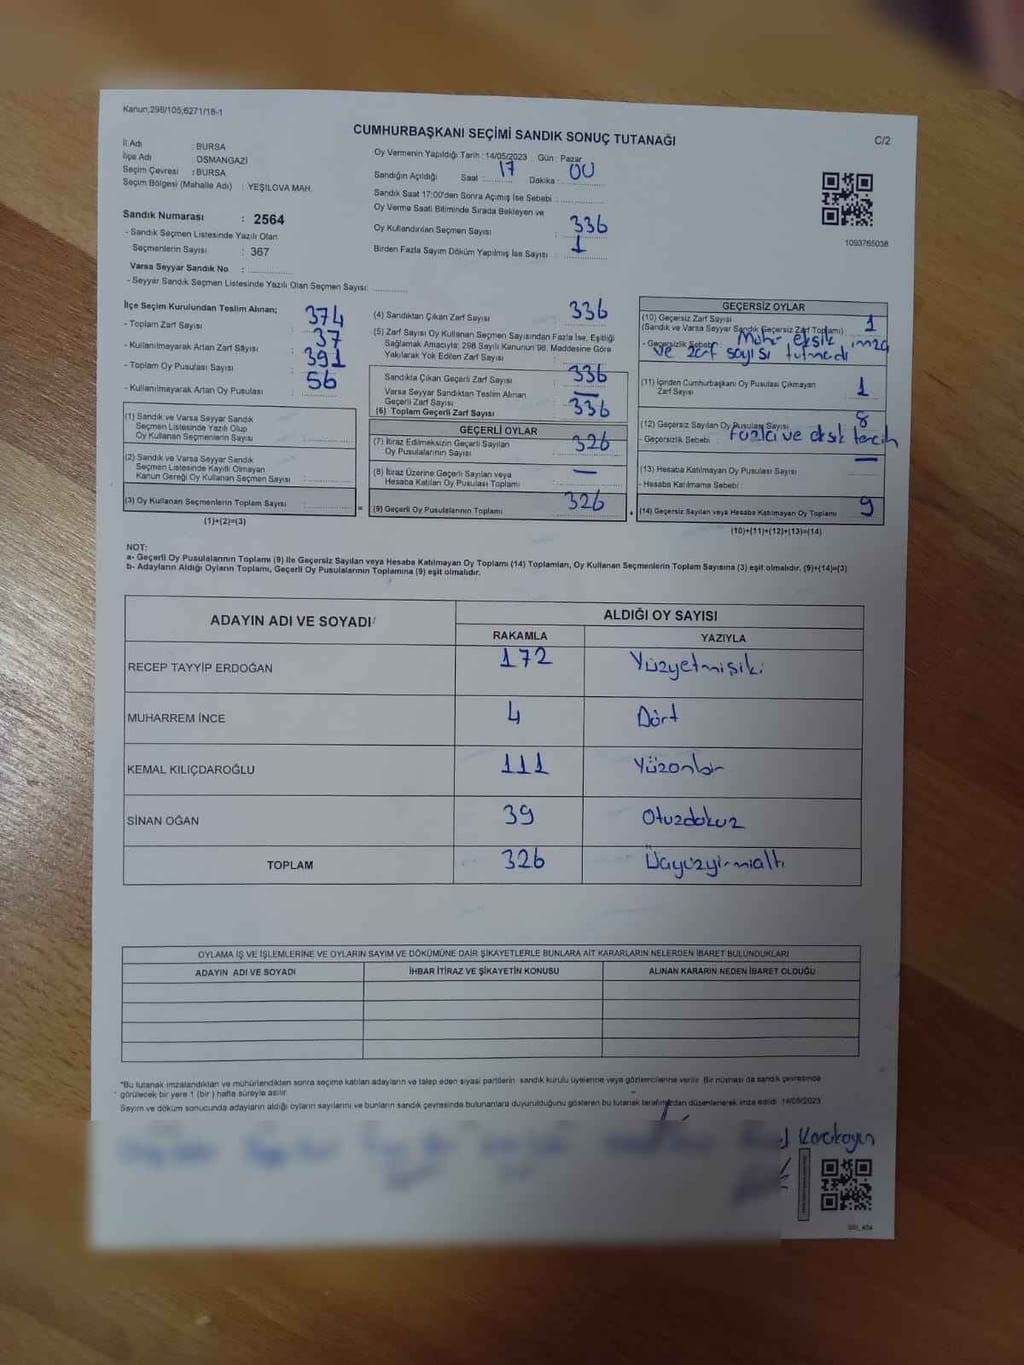 Kanun;298/105,6271/18-1
CUMHURBAŞKANI SEÇİMİ SANDIK SONUÇ TUTANAĞI
C/2
İl Adı : BURSA
İlçe Adı : OSMANGAZİ
Seçim Çevresi : BURSA
Seçim Bölgesi (Mahalle Adı) : YEŞİLOVA MAH.
Sandık Numarası : 2564
- Sandık Seçmen Listesinde Yazılı Olan
Seçmenlerin Sayısı : 367
Varsa Seyyar Sandık No :
- Seyyar Sandık Seçmen Listesinde Yazılı Olan Seçmen Sayısı:
Oy Vermenin Yapıldığı Tarih : 14/05/2023 Gün : Pazar
Sandığın Açıldığı Saat : 17 Dakika : 00
Sandık Saat 17:00'den Sonra Açmış İse Sebebi :
Oy Verme Saati Bitiminde Sırada Bekleyen ve
Oy Kullandırılan Seçmen Sayısı : 336
Birden Fazla Sayım Döküm Yapılmış İse Sayısı : 1
1093765038
İlçe Seçim Kurulundan Teslim Alınan;
- Toplam Zarf Sayısı : 374
- Kullanılmayarak Artan Zarf Sayısı : 37
- Toplam Oy Pusulası Sayısı : 391
- Kullanılmayarak Artan Oy Pusulası : 56
(1) Sandık ve Varsa Seyyar Sandık
Seçmen Listesinde Yazılı Olup
Oy Kullanan Seçmenlerin Sayısı :
(2) Sandık ve Varsa Seyyar Sandık
Seçmen Listesinde Kayıtlı Olmayan
Kanun Gereği Oy Kullanan Seçmen Sayısı :
(3) Oy Kullanan Seçmenlerin Toplam Sayısı :
(1)+(2)=(3)
(4) Sandıktan Çıkan Zarf Sayısı : 336
(5) Zarf Sayısı Oy Kullanan Seçmen Sayısından Fazla İse, Eşitliği
Sağlamak Amacıyla; 298 Sayılı Kanunun 98. Maddesine Göre
Yakılarak Yok Edilen Zarf Sayısı :
Sandıkta Çıkan Geçerli Zarf Sayısı : 336
Varsa Seyyar Sandıktan Teslim Alınan
Geçerli Zarf Sayısı : —
(6) Toplam Geçerli Zarf Sayısı : 336
GEÇERLİ OYLAR
(7) İtiraz Edilmeksizin Geçerli Sayılan
Oy Pusulalarının Sayısı : 326
(8) İtiraz Üzerine Geçerli Sayılan veya
Hesaba Katılan Oy Pusulası Toplamı : —
(9) Geçerli Oy Pusulalarının Toplamı : 326
GEÇERSİZ OYLAR
(10) Geçersiz Zarf Sayısı
(Sandık ve Varsa Seyyar Sandık Geçersiz Zarf Toplamı) : 1
- Geçersizlik Sebebi : Mühür eksik, imza
ve zarf sayısı tutmadı
(11) İçinden Cumhurbaşkanı Oy Pusulası Çıkmayan
Zarf Sayısı : 1
(12) Geçersiz Sayılan Oy Pusulası Sayısı : 8
- Geçersizlik Sebebi : Fazla ve eksik tercih
(13) Hesaba Katılmayan Oy Pusulası Sayısı : —
- Hesaba Katılmama Sebebi :
(14) Geçersiz Sayılan veya Hesaba Katılmayan Oy Toplamı : 9
(10)+(11)+(12)+(13)=(14)
NOT:
a- Geçerli Oy Pusulalarının Toplamı (9) ile Geçersiz Sayılan veya Hesaba Katılmayan Oy Toplamı (14) Toplamları, Oy Kullanan Seçmenlerin Toplam Sayısına (3) eşit olmalıdır. (9)+(14)=(3)
b- Adayların Aldığı Oyların Toplamı, Geçerli Oy Pusulalarının Toplamına (9) eşit olmalıdır.
ADAYIN ADI VE SOYADI ALDIĞI OY SAYISI
RAKAMLA YAZIYLA
RECEP TAYYİP ERDOĞAN 172 Yüzyetmişiki
MUHARREM İNCE 4 Dört
KEMAL KILIÇDAROĞLU 111 Yüzonbir
SİNAN OĞAN 39 Otuzdokuz
TOPLAM 326 Üçyüzyirmialtı
OYLAMA İŞ VE İŞLEMLERİNE VE OYLARIN SAYIM VE DÖKÜMÜNE DAİR ŞİKAYETLERLE BUNLARA AİT KARARLARIN NELERDEN İBARET BULUNDUKLARI
ADAYIN ADI VE SOYADI İHBAR İTİRAZ VE ŞİKAYETİN KONUSU ALINAN KARARIN NEDEN İBARET OLDUĞU
*Bu tutanak imzalandıktan ve mühürlendikten sonra seçime katılan adayların ve talep eden siyasi partilerin sandık kurulu üyelerine veya gözlemcilerine verilir. Bir nüshası da sandık çevresinde
görülecek bir yere 1 (bir) hafta süreyle asılır.
Sayım ve döküm sonucunda adayların aldığı oyların sayılarını ve bunların sandık çevresinde bulunanlara duyurulduğunu gösteren bu tutanak tarafımızdan düzenlenerek imza edildi. 14/05/2023